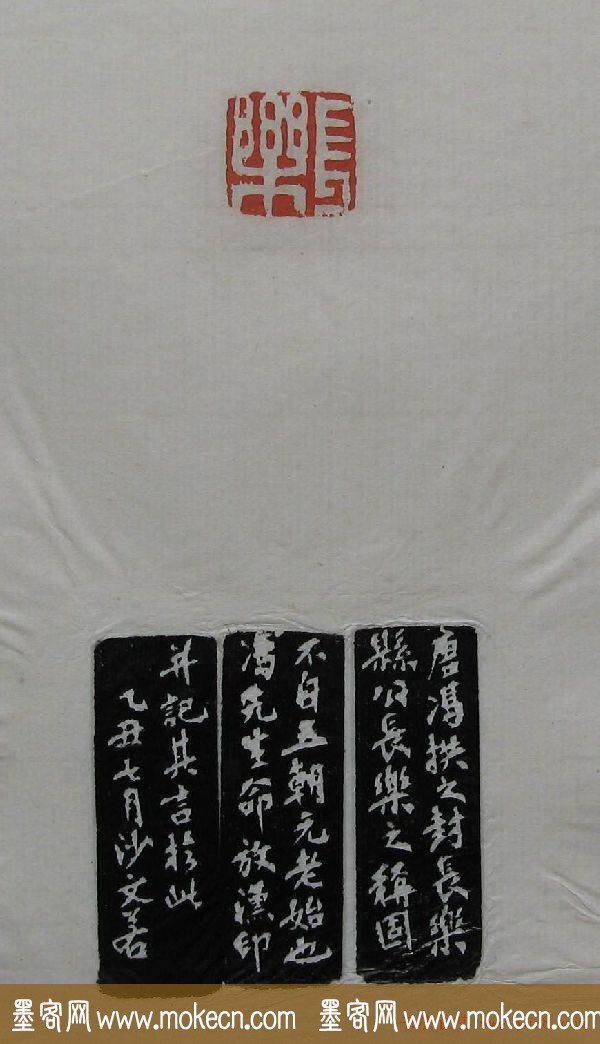 長樂
唐馮拱之封長樂
縣公長樂之稱固
不自五朝元老始也
馮先生命放漢印
并記其言於此
乙丑七月沙文若
墨客网 www.mokecn.com 墨客网 www.mokecn.com